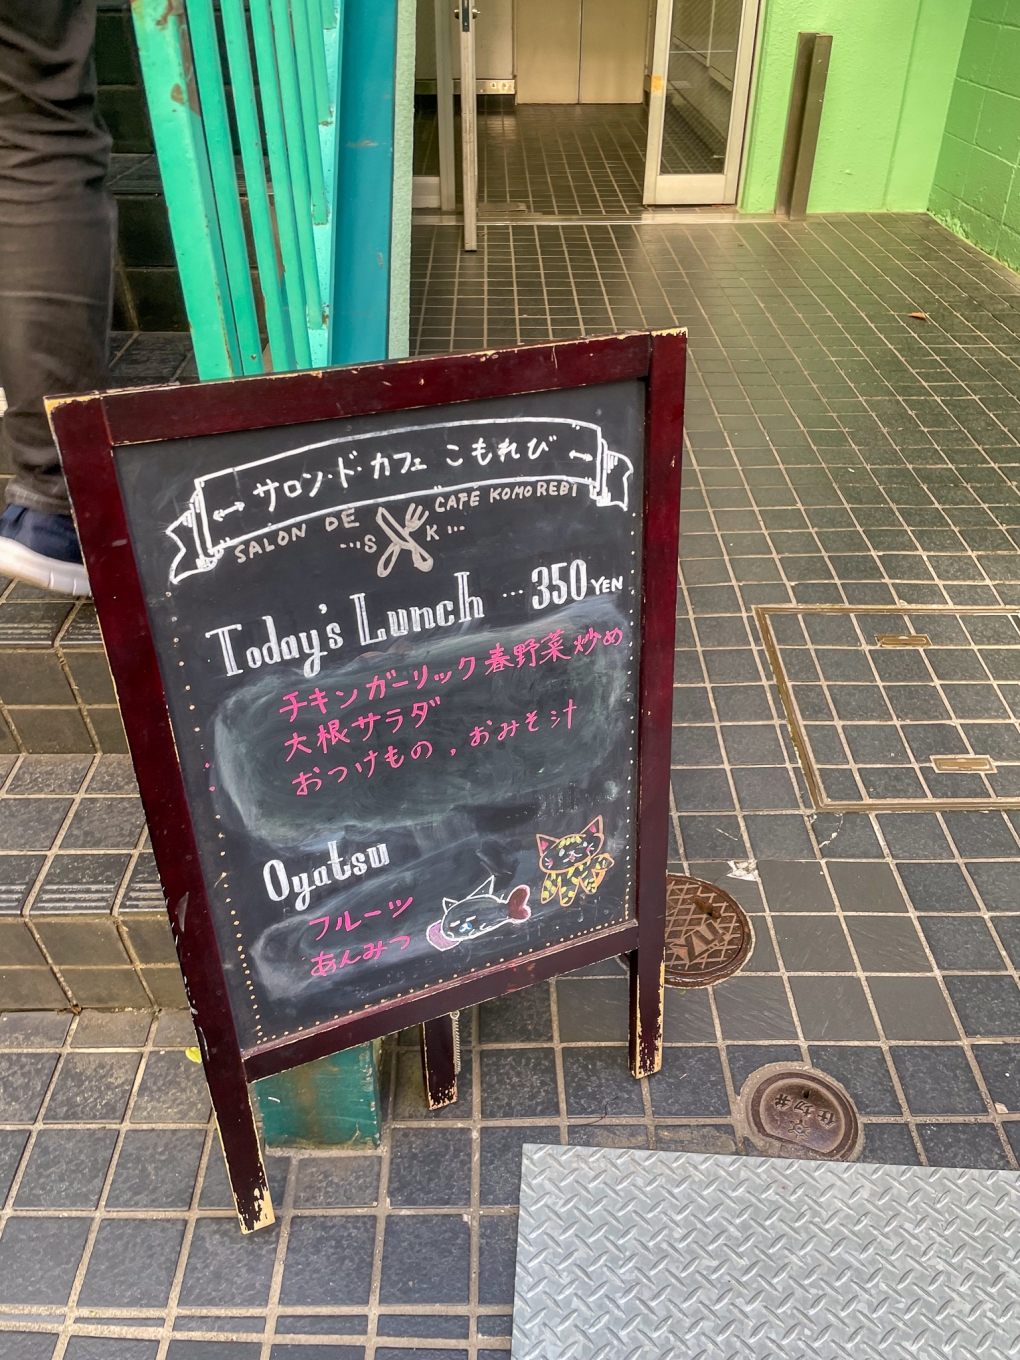 サロン・ド・カフェ こもれび
SALON DE CAFE KOMOREBI
...S K...
Today's Lunch ... 350 YEN
チキンガーリック春野菜炒め
大根サラダ
おつけもの , おみそ汁
Oyatsu
フルーツ
あんみつ
仕切弁